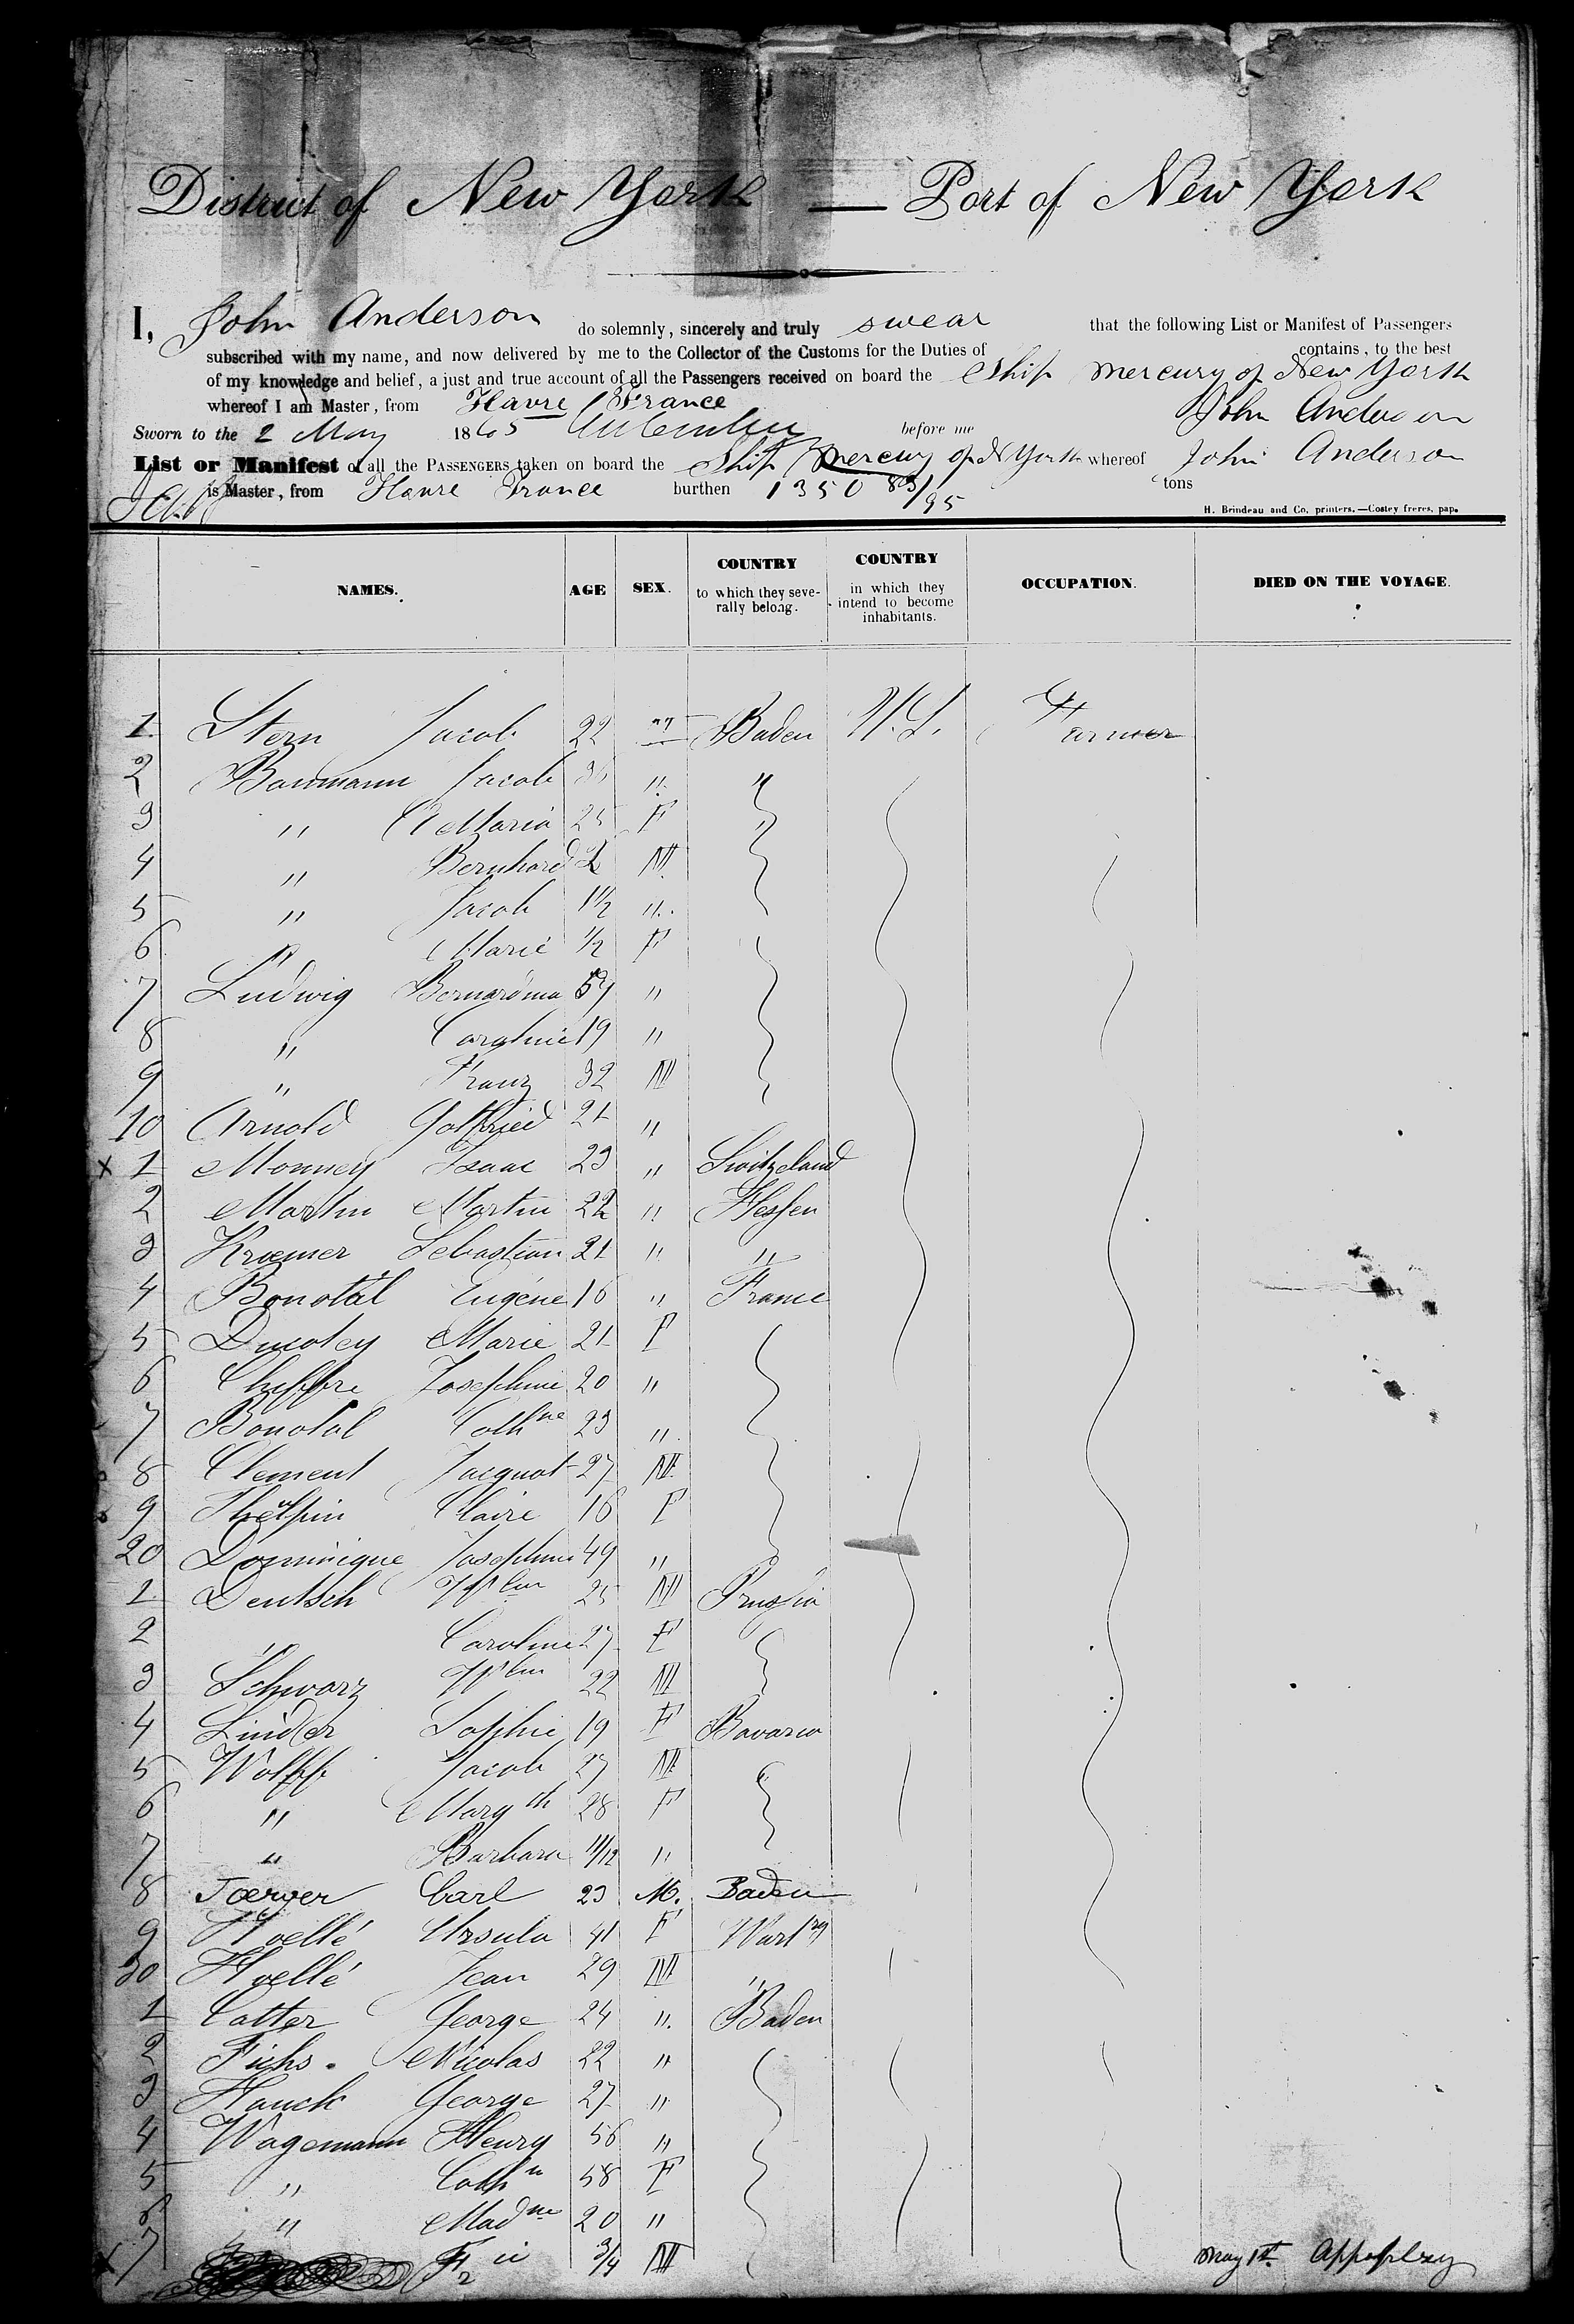 District of New York — Port of New York
I, John Anderson do solemnly, sincerely and truly swear that the following List or Manifest of Passengers
subscribed with my name, and now delivered by me to the Collector of the Customs for the Duties of contains, to the best
of my knowledge and belief, a just and true account of all the Passengers received on board the Ship Mercury of New York
whereof I am Master, from Havre France John Anderson
Sworn to the 2 May 1865 before me
List or Manifest of all the PASSENGERS taken on board the Ship Mercury of N York whereof John Anderson
is Master, from Havre France burthen 1350 83/95 tons
H. Brindeau and Co, printers.—Costey freres, pap.
NAMES. AGE SEX. COUNTRY to which they severally belong. COUNTRY in which they intend to become inhabitants. OCCUPATION. DIED ON THE VOYAGE.
1 Stern Jacob 22 m Baden U.S. Farmer
2 Baumann Jacob 36 " "
3 " Maria 25 F "
4 " Bernhard 2 M
5 " Jacob 1 1/2 "
6 " Marie 1/2 F
7 Ludwig 59 "
8 " Caroline 19 "
9 " Franz 32 M
10 Arnold Gottfried 21 "
x 1 Monney Isaac 23 " Switzeland
2 Martin Martin 22 " Hessen
3 Kraemer Sebastian 21 " "
4 Bonotal Eugène 16 " France
5 Marie 21 F
6 Josephine 20 "
7 Bonotal Cathne 23 "
8 Clement Jacquot 27 M
9 Claire 16 F
20 Dominique Josephine 49 "
1 Deutsch Wilm 25 M Prussia
2 " Caroline 27 F
3 Schwarz Wilm 22 M
4 Linder Sophie 19 F Bavaria
5 Wolff Jacob 27 M
6 " Margth 28 F
7 " Barbara 11/12 "
8 Joerger Carl 23 M. Baden
9 Hoellé Ursula 41 F Wurtrg
30 Hoellé Jean 29 M "
1 Catter George 24 " Baden
2 Fichs. Nicolas 22 "
3 Hauck George 27 "
4 Wagemann Henry 56 "
5 " Cathn 58 F
6 " Madne 20 "
x 7 3/4 M May 1st Appoplexy